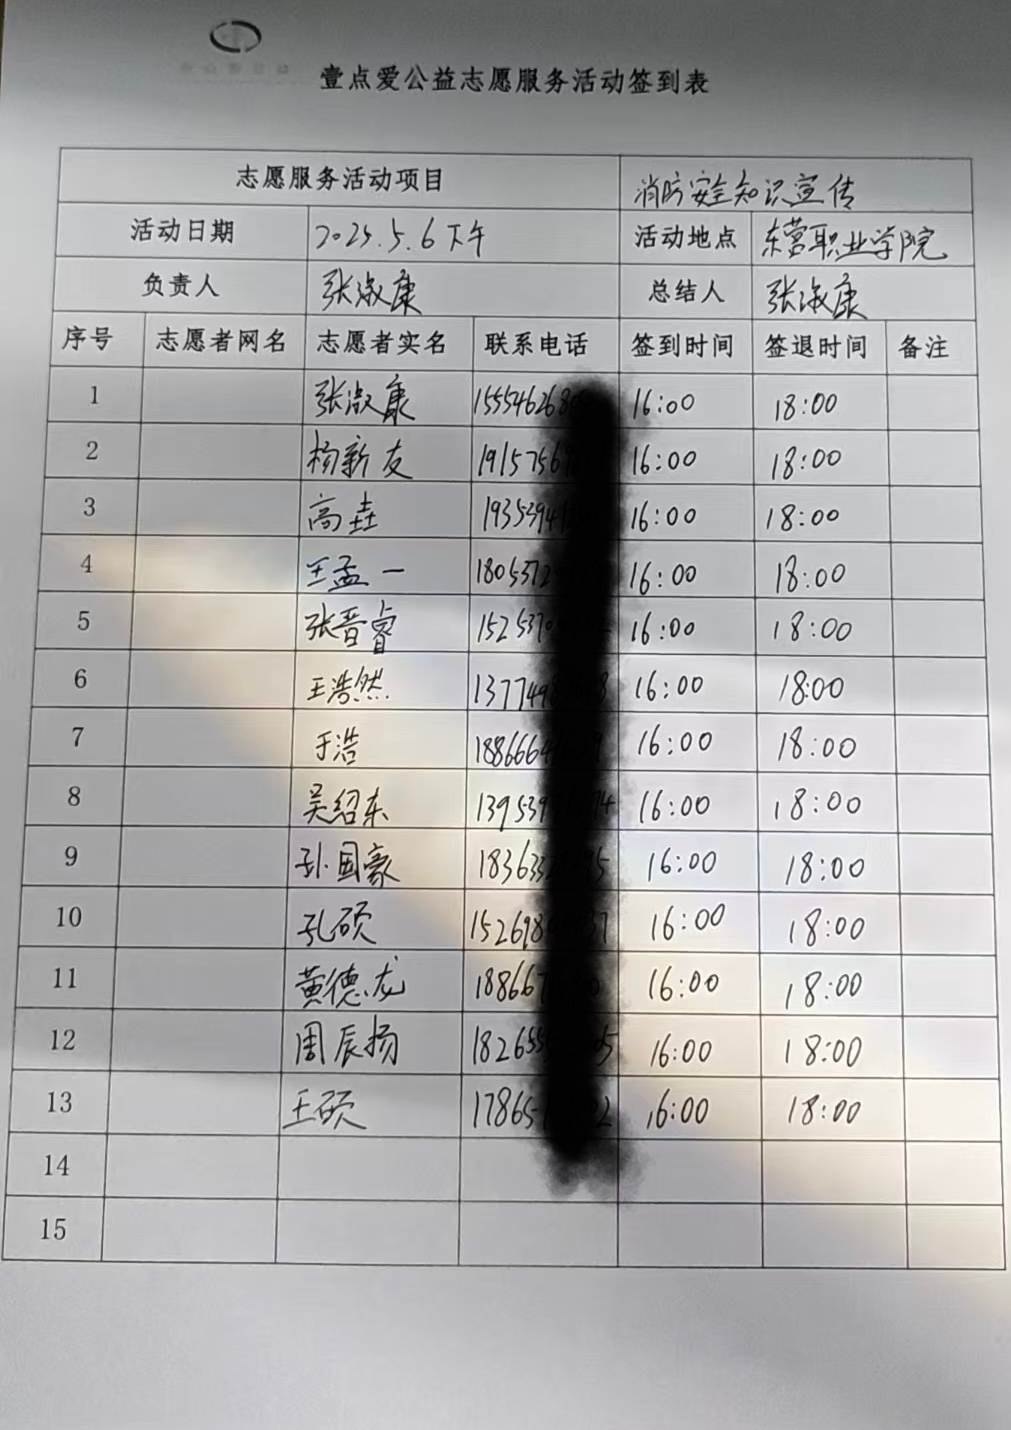 壹点爱公益志愿服务活动签到表
志愿服务活动项目 消防安全知识宣传
活动日期 2025.5.6下午 活动地点 东营职业学院
负责人 张淑康 总结人 张淑康
序号 志愿者网名 志愿者实名 联系电话 签到时间 签退时间 备注
1 张淑康 15554626 16:00 18:00
2 杨新友 1915756 16:00 18:00
3 高垚 1935394 16:00 18:00
4 王孟一 180537 16:00 18:00
5 张晋睿 152537 16:00 18:00
6 王浩然 137749 16:00 18:00
7 于浩 188666 16:00 18:00
8 吴绍东 13953 16:00 18:00
9 孙国豪 18363 16:00 18:00
10 孔硕 152698 16:00 18:00
11 黄德龙 18866 16:00 18:00
12 周辰扬 18265 16:00 18:00
13 王硕 17865 16:00 18:00
14
15